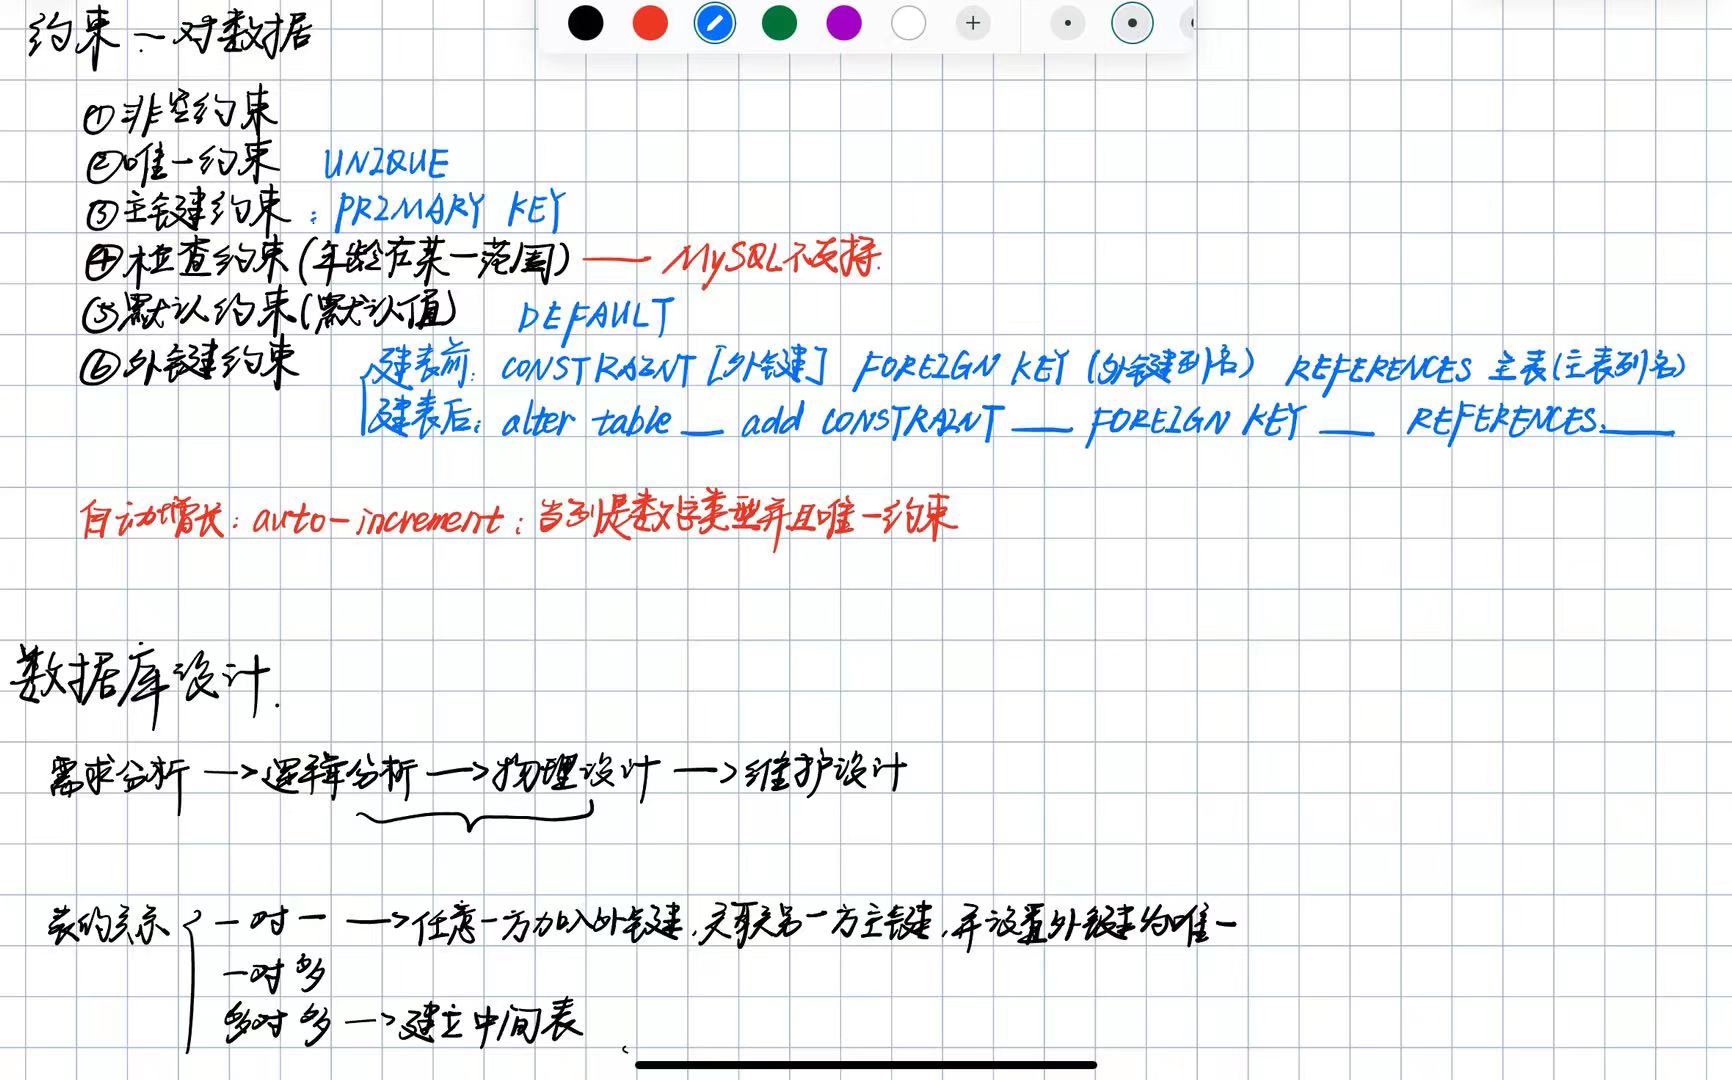 约束:一对数据
①非空约束
②唯一约束 UNIQUE
③主键约束:PRIMARY KEY
④检查约束(年龄在某一范围)——MySQL不支持.
⑤默认约束(默认值) DEFAULT
⑥外键约束
建表前:CONSTRAINT [外键] FOREIGN KEY (外键列名) REFERENCES 主表(主表列名)
建表后:alter table __ add CONSTRAINT __ FOREIGN KEY __ REFERENCES.__
自动增长:auto-increment:当列是数字类型并且唯一约束
数据库设计.
需求分析 —>逻辑分析 —>物理设计 —>维护设计
表的关系
一对一 —>任意一方加入外键,关联另一方主键,并设置外键为唯一
一对多
多对多 —>建立中间表